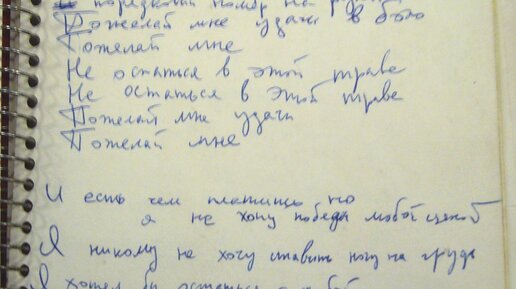 порядковый номер на рукаве
Пожелай мне удачи в бою
Пожелай мне
Не остаться в этой траве
Не остаться в этой траве
Пожелай мне удачи
Пожелай мне
И есть чем платить но
я не хочу победы любой ценой
Я никому не хочу ставить ногу на грудь
Я хотел бы остаться с тобой